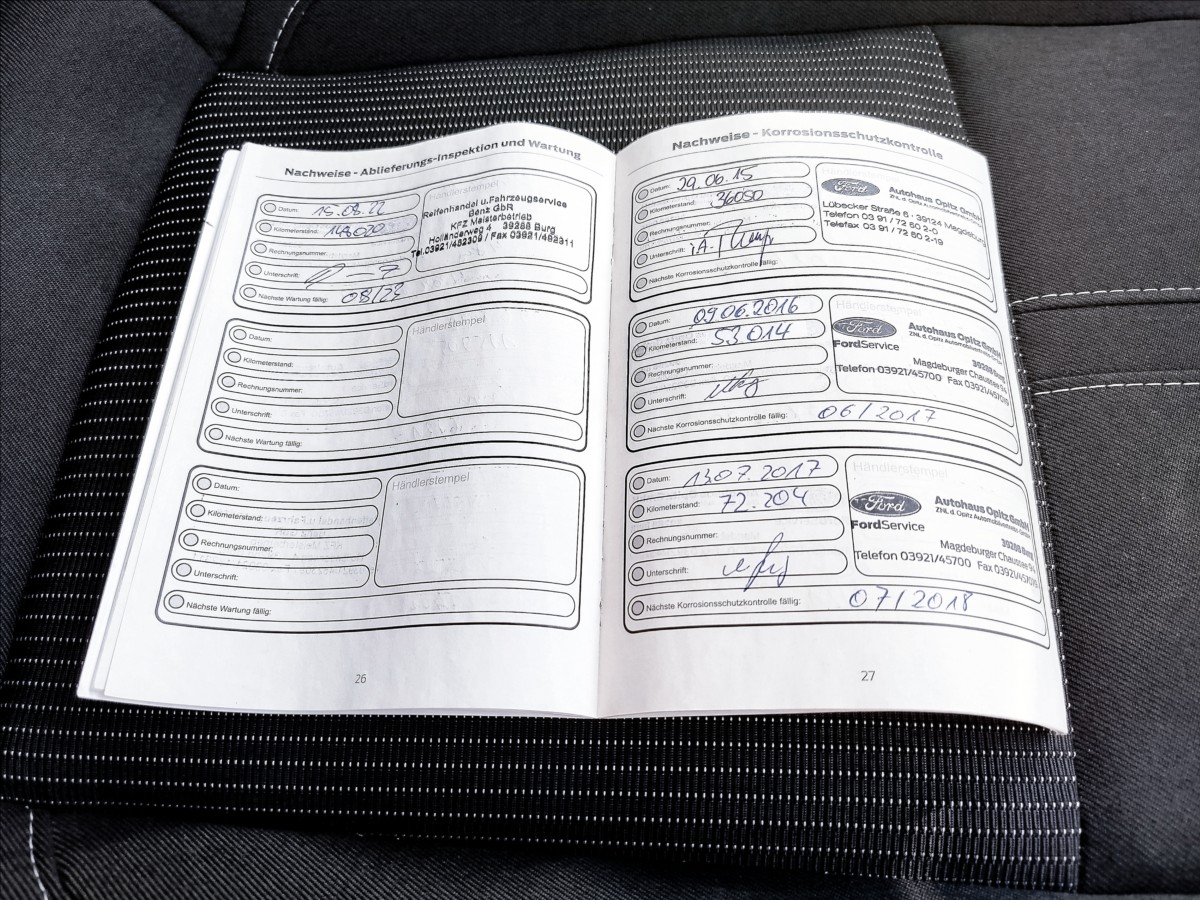 Nachweise - Ablieferungs-Inspektion und Wartung
Datum: 15.08.22
Kilometerstand: 148020
Rechnungsnummer:
Unterschrift:
Nächste Wartung fällig: 08/23
Händlerstempel
Reifenhandel u.Fahrzeugservice
Benz GbR
KFZ Meisterbetrieb
Holländerweg 4 39288 Burg
Tel.03921/482309 / Fax 03921/482311
Datum:
Kilometerstand:
Rechnungsnummer:
Unterschrift:
Nächste Wartung fällig:
Händlerstempel
Datum:
Kilometerstand:
Rechnungsnummer:
Unterschrift:
Nächste Wartung fällig:
Händlerstempel
26
Nachweise - Korrosionsschutzkontrolle
Datum: 29.06.15
Kilometerstand: 36050
Rechnungsnummer:
Unterschrift: i.A.
Nächste Korrosionsschutzkontrolle fällig:
Ford
Autohaus Opitz GmbH
ZNL d. Opitz Automobilkontor GmbH
Lübecker Straße 6 · 39124 Magdeburg
Telefon 03 91 / 72 60 2-0
Telefax 03 91 / 72 60 2-19
Datum: 09.06.2016
Kilometerstand: 53014
Rechnungsnummer:
Unterschrift:
Nächste Korrosionsschutzkontrolle fällig: 06/2017
Händlerstempel
Ford
FordService
Autohaus Opitz GmbH
ZNL d. Opitz Automobilkontor GmbH
39288 Burg
Magdeburger Chaussee 94
Telefon 03921/45700 Fax 03921/457019
Datum: 13.07.2017
Kilometerstand: 72.204
Rechnungsnummer:
Unterschrift:
Nächste Korrosionsschutzkontrolle fällig: 07/2018
Händlerstempel
Ford
FordService
Autohaus Opitz GmbH
ZNL d. Opitz Automobilkontor GmbH
39288 Burg
Magdeburger Chaussee 94
Telefon 03921/45700 Fax 03921/457019
27